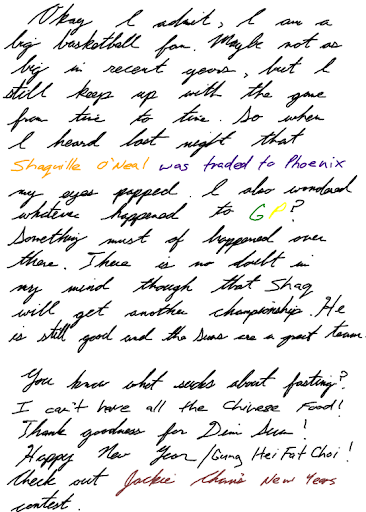 Okay I admit, I am a
big basketball fan. Maybe not as
big in recent years, but I
still keep up with the game
from time to time. So when
I heard last night that
Shaquille O'Neal was traded to Phoenix
my eyes popped. I also wondered
whatever happened to GP?
Something must of happened over
there. There is no doubt in
my mind though that Shaq
will get another championship. He
is still good and the Suns are a great team.
You know what sucks about fasting?
I can't have all the Chinese Food!
Thank goodness for Dim Sum!
Happy New Year/Gung Hei Fat Choi!
Check out Jackie Chan's New Years
contest.